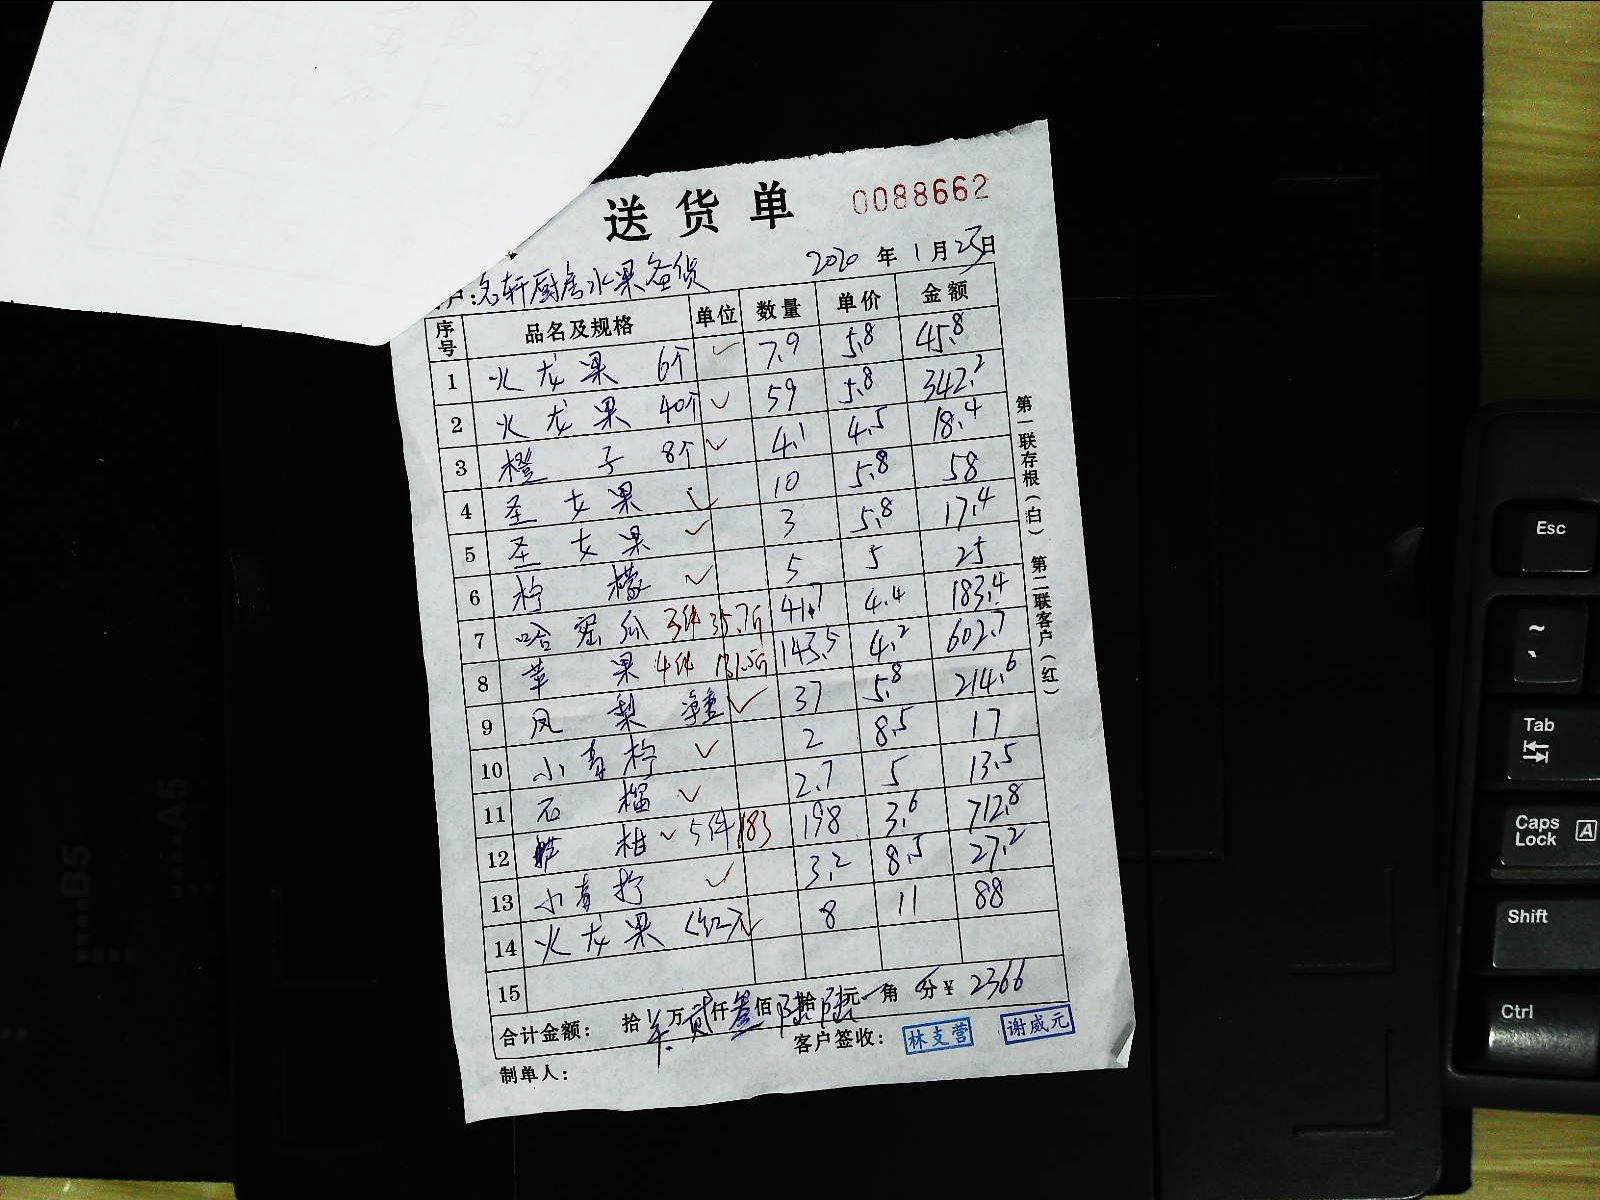 送货单 0088662
户:名轩厨房水果备货 2020年1月25日
序号 品名及规格 单位 数量 单价 金额
1 火龙果 6个 ✓ 7.9 5.8 45.8
2 火龙果 40个 ✓ 59 5.8 342.2
3 橙子 8个 ✓ 4.1 4.5 18.4
4 圣女果 ✓ 10 5.8 58
5 圣女果 ✓ 3 5.8 17.4
6 柠檬 ✓ 5 5 25
7 哈密瓜 3件 35.7斤 41.7 4.4 183.4
8 苹果 4件 131.5斤 143.5 4.2 602.7
9 凤梨 净重 ✓ 37 5.8 214.6
10 小青柠 ✓ 2 8.5 17
11 石榴 ✓ 2.7 5 13.5
12 柑 ✓ 5件 183 198 3.6 712.8
13 小青柠 ✓ 3.2 8.5 27.2
14 火龙果 (红) ✓ 8 11 88
15
合计金额: 拾 万贰仟叁佰陆拾陆元一角 分¥ 2366
客户签收: 林支营 谢威元
制单人:
第一联存根(白) 第二联客户(红)
Esc
~
Tab
Caps Lock A
Shift
Ctrl
B5
A5